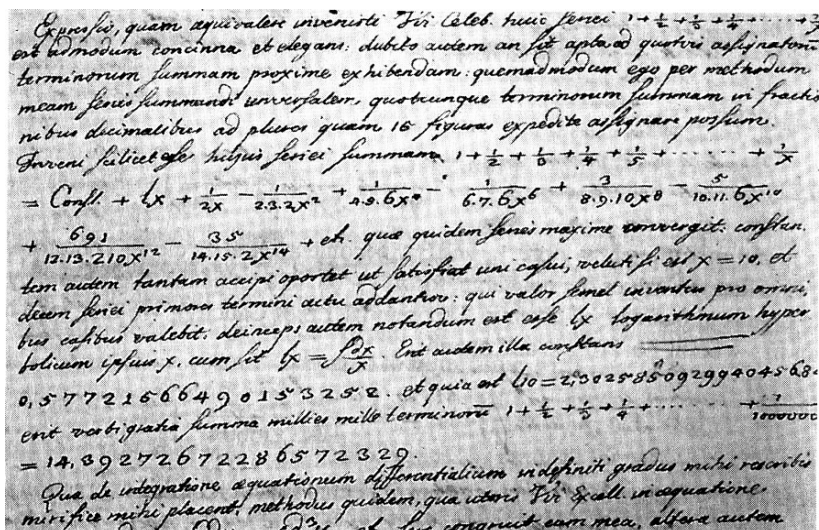 Expressio, quam æquivalere invenisti Vir Celeb. huic seriei 1 + 1/2 + 1/3 + 1/4 + ...... 1/x
est admodum concinna et elegans: dubito autem an sit apta ad quotvis assignatorum
terminorum summam proxime exhibendam: quemadmodum ego per methodum
meam series summandi universalem, quotcunque terminorum summam in fractio
nibus decimalibus ad plures quam 16 figuras expedite assignare possum.
Inveni scilicet esse hujus seriei summam 1 + 1/2 + 1/3 + 1/4 + 1/5 + ...... + 1/x
= Const. + lx + 1/2x − 1/2.3.2x^2 + 1/4.5.6x^4 − 1/6.7.6x^6 + 3/8.9.10x^8 − 5/10.11.6x^10
+ 691/12.13.210x^12 − 35/14.15.2x^14 + etc. quæ quidem series maxime convergit: constan
tem autem tantam accipi oportet ut satisfiat uni casui, veluti si est x = 10, et
decem seriei primores termini actu addantur: qui valor semel inventus pro omni
bus casibus valebit. deinceps autem notandum est esse lx logarithmum hyper
bolicum ipsius x, cum sit lx = ∫dx/x. Erit autem illa constans
0,5772156649015325 2. et quia est l10 = 2,302585092994045684
erit verbi gratia summa millies mille terminorum 1 + 1/2 + 1/3 + 1/4 + ...... + 1/1000000
= 14,392726722865 72329.
Quæ de integratione æquationum differentialium indefiniti gradus mihi rescribis
mirifice mihi placent, methodus quidem, qua uteris Vir Excell. in æquatione
congruit cum mea, altera autem